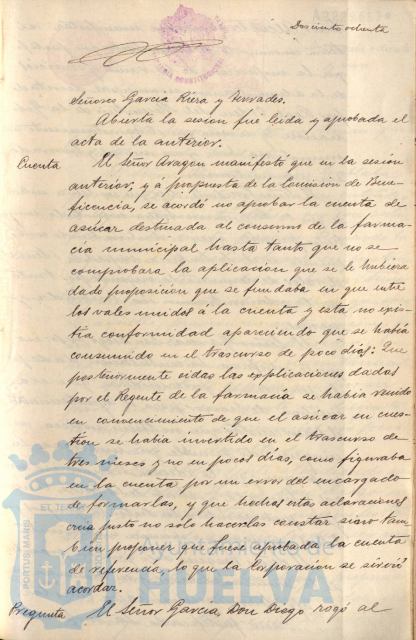 Doscientos ochenta
Señores Garcia Riera y Terrades.
Abierta la sesion fué leida y aprobada el
acta de la anterior.
Cuenta
El Señor Aragon manifestó que en la sesion
anterior, y á propuesta de la Comision de Bene-
ficencia, se acordó no aprobar la cuenta de
azúcar destinada al consumo de la farma-
cia municipal hasta tanto que no se
comprobara la aplicacion que se le hubiera
dado proposicion que se fundaba en que entre
los vales unidos á la cuenta y esta no exis-
tia conformidad apareciendo que se habia
consumido en el trascurso de pocos dias: Que
posteriormente oidas las explicaciones dadas
por el Regente de la farmacia se habia venido
en convencimiento de que el azúcar en cues-
tion se habia invertido en el trascurso de
tres meses y no en pocos dias, como figuraba
en la cuenta por un error del encargado
de formarlas, y que hechas estas aclaraciones
creia justo no solo hacerlas constar sino tam-
bien proponer que fuese aprobada la cuenta
de referencia, lo que la Corporacion se sirvió
acordar.
Pregunta
El Señor Garcia, Don Diego rogó al
PORTUS MARIS
Ayuntamiento de
HUELVA